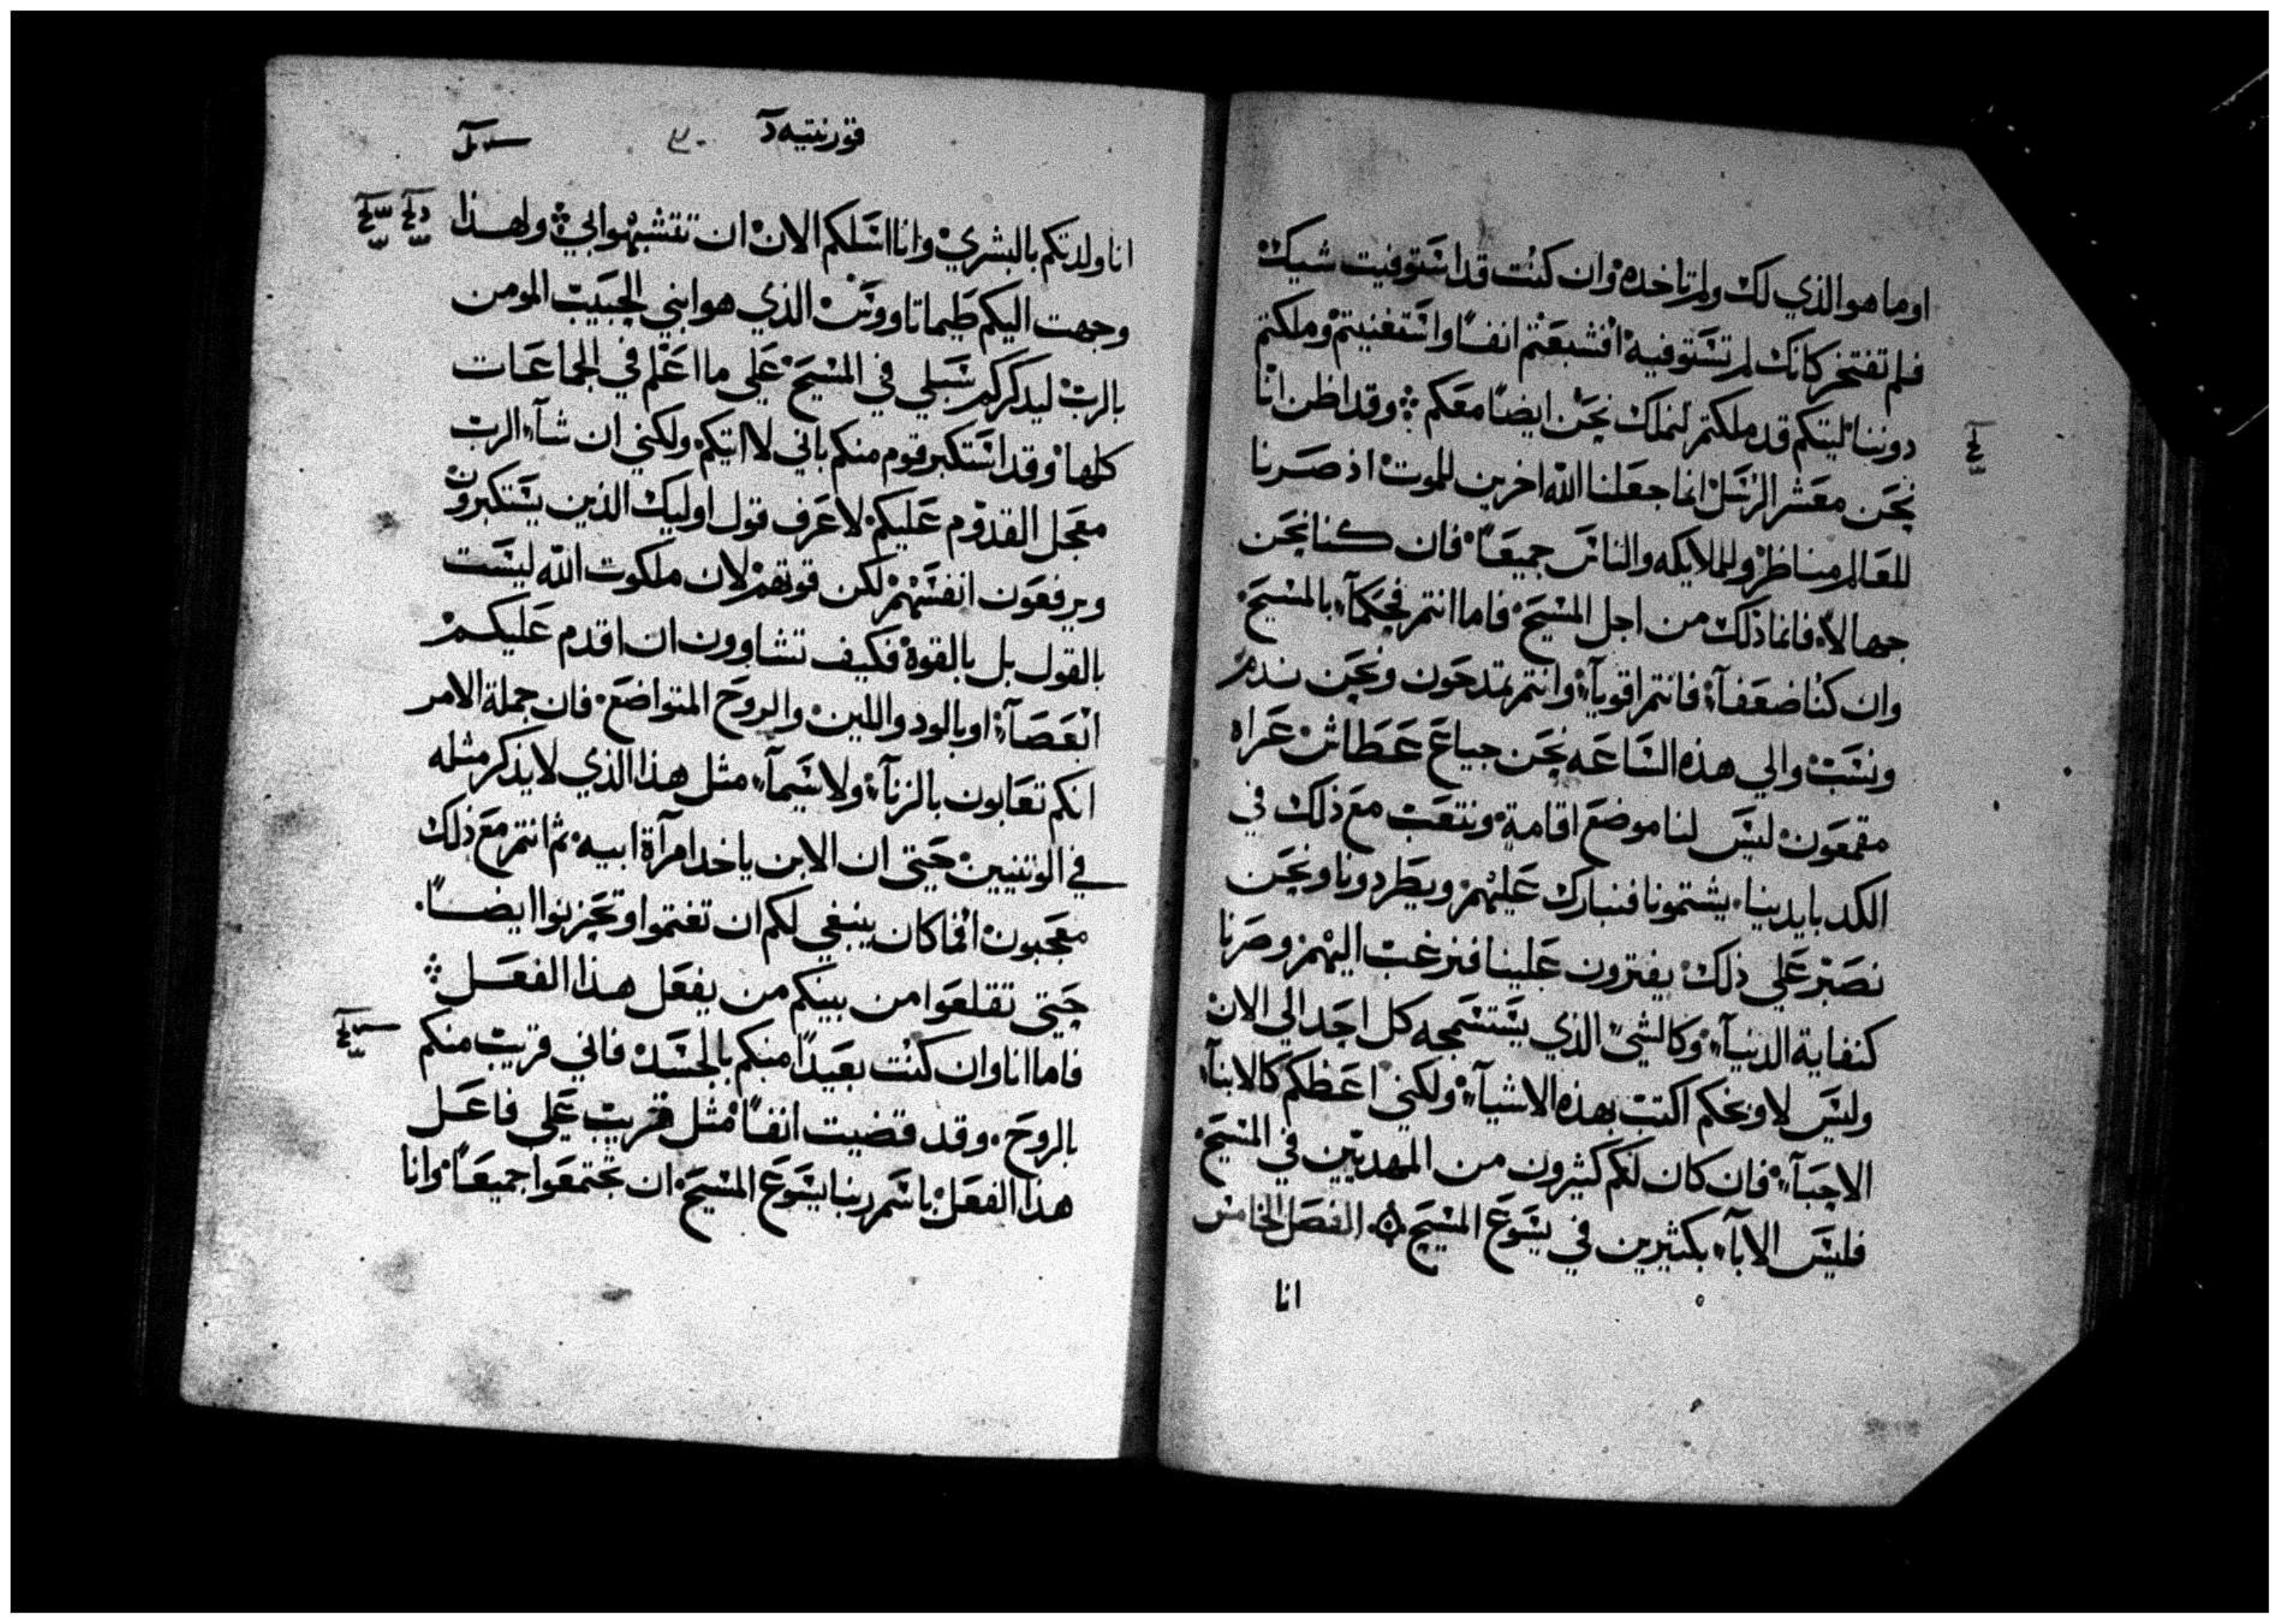 اوما هو الذي لك ولم تاخده وان كنت قد استوفيت شيك
فلم تفتخر كانك لم تستوفيه افشبعتم انفًا واستغنيتم وملكتم
دوننا ليتكم قد ملكتم لنملك نحن ايضًا معكم وقد اظن انا
نحن معشر الرسل انما جعلنا الله اخرين للموت اذ صرنا
للعالم مناظر وللملايكه والناس جميعًا فان كنا نحن
جهالاً فانما ذلك من اجل المسيح فاما انتم فحكمآء بالمسيح
وان كنا ضعفآء فانتم اقويآء وانتم تمتدحون ونحن نذم
ونسب والي هذه الساعه نحن جياع عطاش عراه
مقمعون ليس لنا موضع اقامة ونتعب مع ذلك في
الكد بايدينا يشتمونا فنبارك عليهم ويطردونا ونحن
نصبر علي ذلك يفترون علينا فنرغب اليهم وصرنا
كنفاية الدنيآء وكالشيء الذي يستسمجه كل احد الي الان
وليس لاوبخكم اكتب بهذه الاشيآء ولكني اعظكم كالابنآء
الاحبآء فان كان لكم كثيرون من المهديين في المسيح
فليس الابآء بكثيرين في يسوع المسيح الفصل الخامس
انا
قورنتيه
انا ولدتكم بالبشري وانا اسلكم الان ان تتشبهوا بي ولهذا
وجهت اليكم طيماتاوونس الذي هو ابني الحبيب المومن
بالرب ليدكركم سبلي في المسيح علي ما اعلم في الجماعات
كلها وقد استكبر قوم منكم باني لا اتيكم ولكني ان شآء الرب
معجل القدوم عليكم لاعرف قول اوليك الذين يستكبرون
ويرفعون انفسهم لكن قوتهم لان ملكوت الله ليست
بالقول بل بالقوة فكيف تشاوون ان اقدم عليكم
ابعصآء او بالود واللين والروح المتواضع فان جملة الامر
انكم تعابون بالزنآء ولا سيمآء مثل هذا الذي لا يذكر مثله
في الوتنيين حيتي ان الابن ياخد امرآة ابيه ثم انتم مع ذلك
معجبون افما كان ينبغي لكم ان تغتموا وتحزنوا ايضًا
حيتي تقلعوا من بينكم من يفعل هذا الفعل
فاما انا وان كنت بعيدًا منكم بالجسد فاني قريب منكم
بالروح وقد قضيت انفًا مثل قريب علي فاعل
هذا الفعل باسم ربنا يسوع المسيح ان تجتمعوا جميعًا وانا